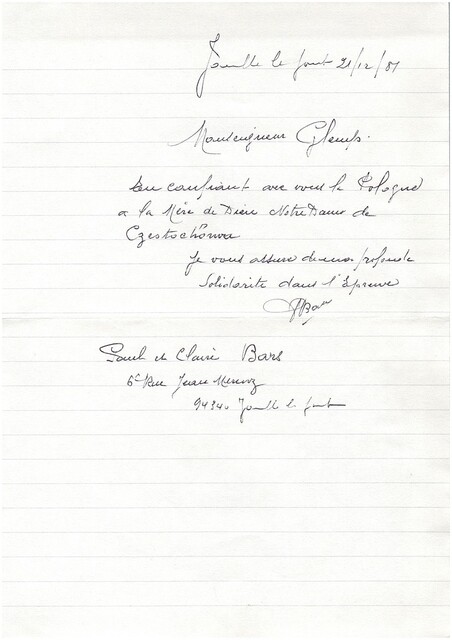 Joinville le pont 21/12/81
Monseigneur Glemp.
En confiant avec vous la Pologne
a la Mère de Dieu Notre Dame de
Czestochowa
Je vous assure de ma profonde
Solidarité dans l'Epreuve
PBars
Paul et Claire Bars
6 Rue Jean Mermoz
94340 Joinville le pont